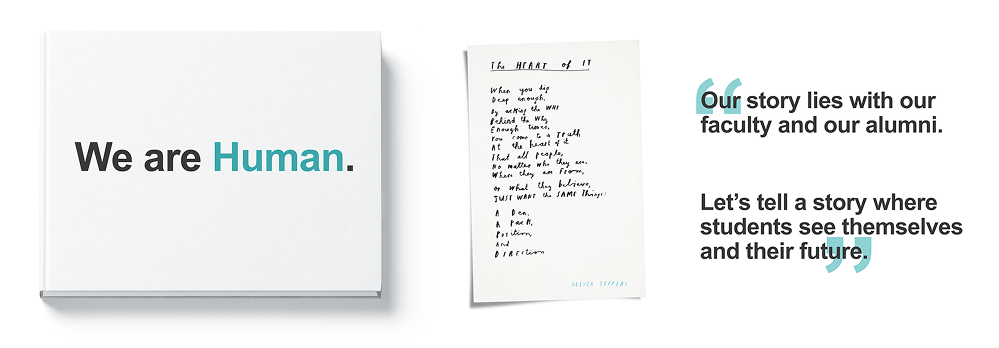 We are Human.
The HEART of IT
When you dig
Deep enough,
By asking the WHY
Behind the Why
Enough times,
You come to a Truth
At the heart of it
That all people,
No matter who they are,
Where they are From,
or what they believe,
JUST WANT the SAME Things:
A Den,
A Pack,
Position,
And
DIRECTION
OLIVER JEFFERS
“Our story lies with our
faculty and our alumni.
Let’s tell a story where
students see themselves
and their future.”